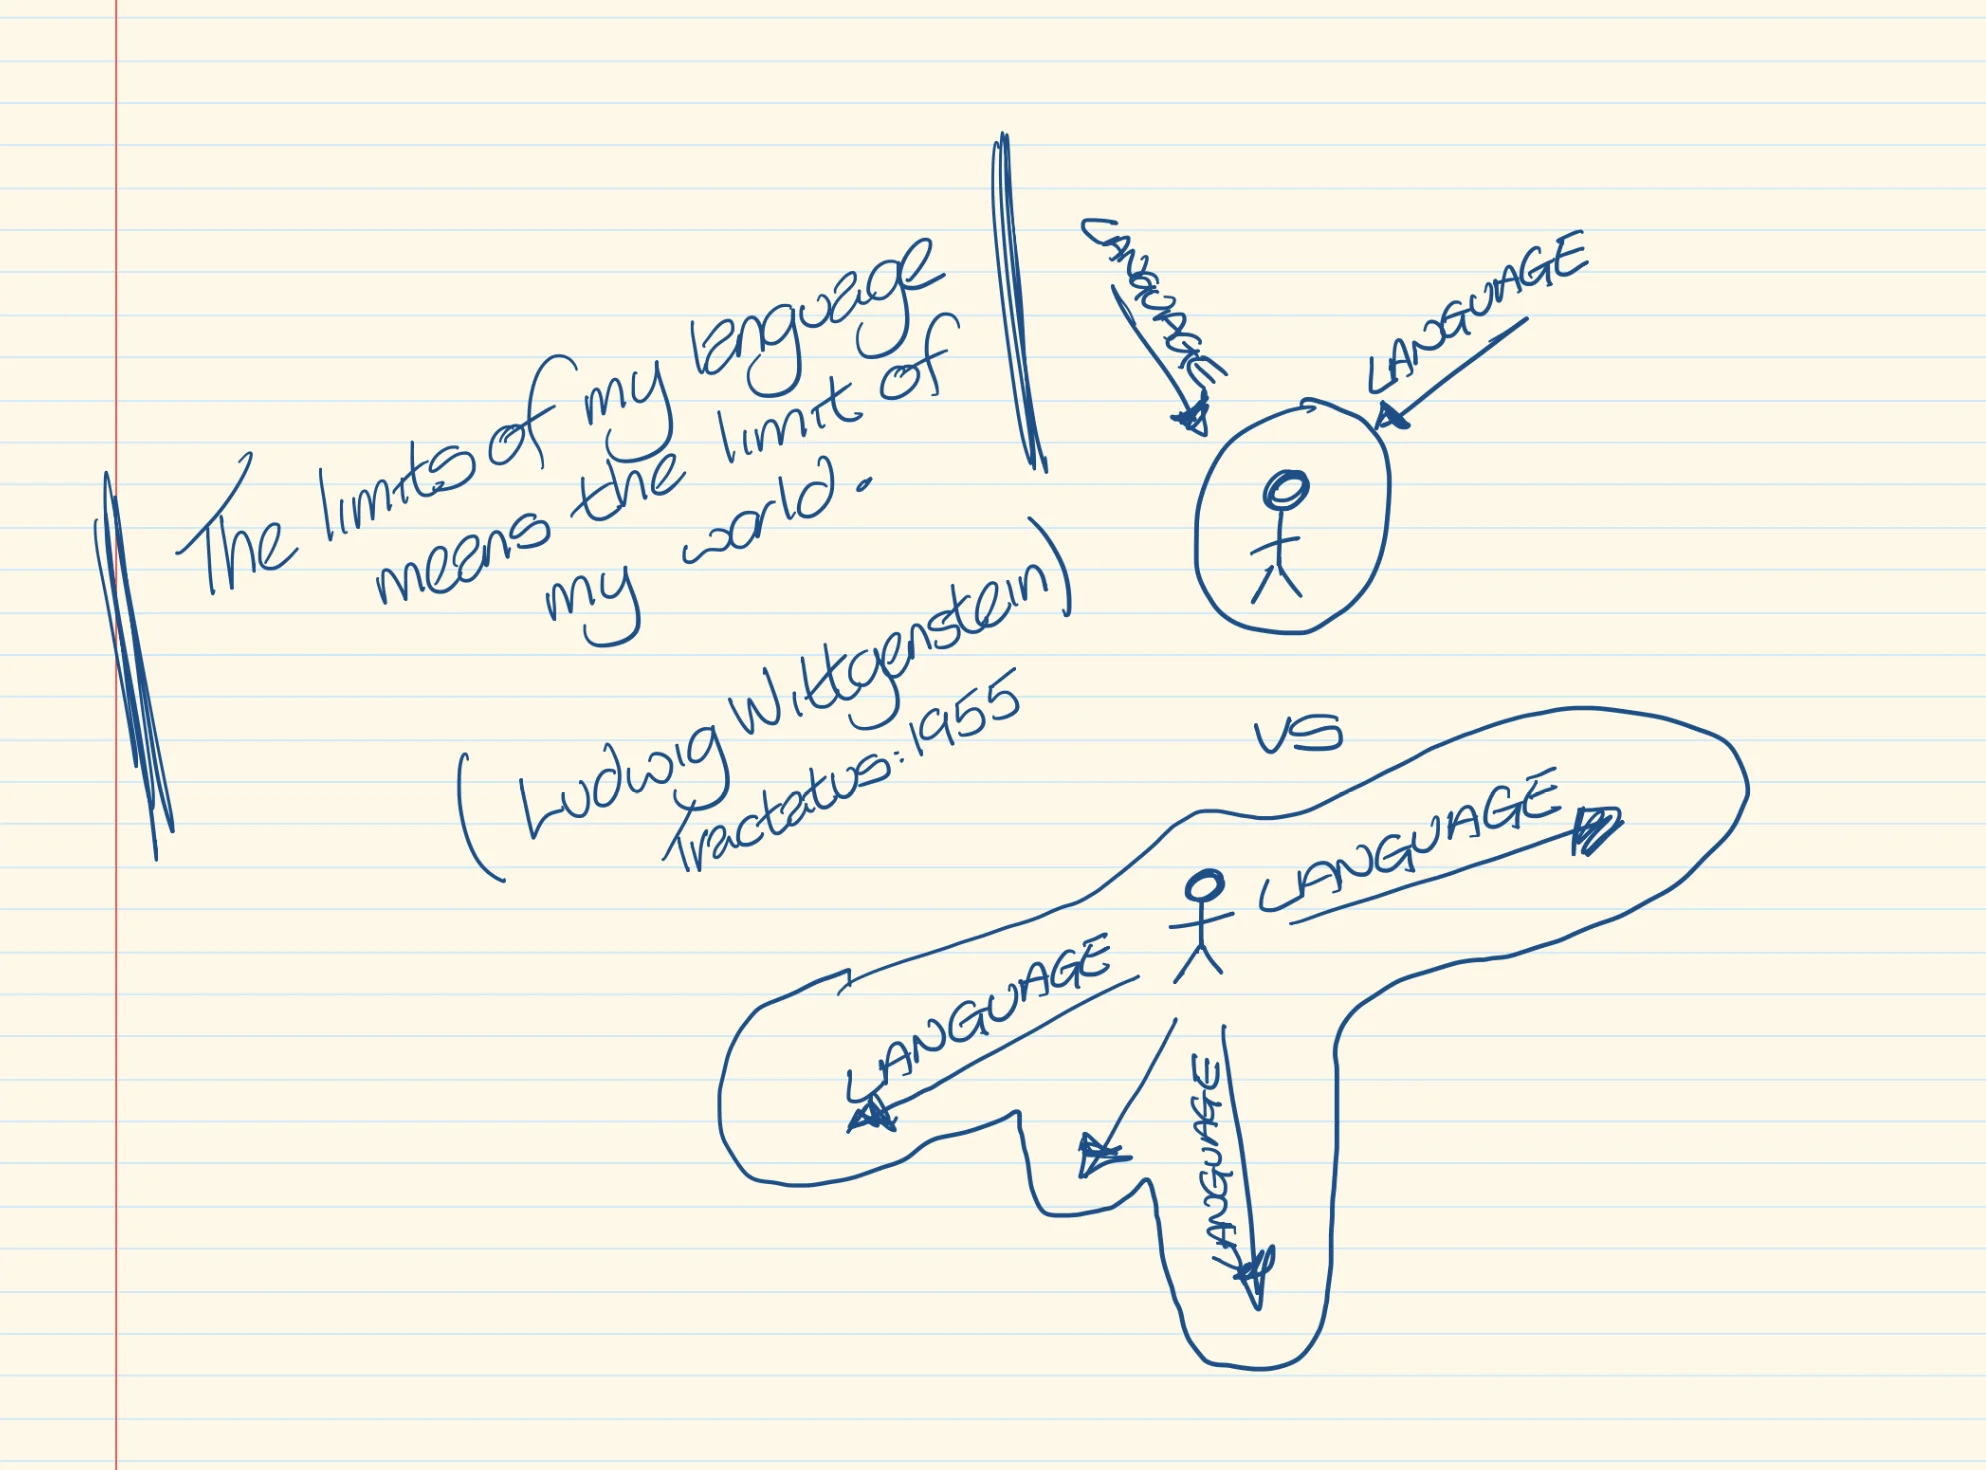 The limits of my language
means the limit of
my world.
(Ludwig Wittgenstein)
Tractatus: 1955
LANGUAGE
LANGUAGE
VS
LANGUAGE
LANGUAGE
LANGUAGE